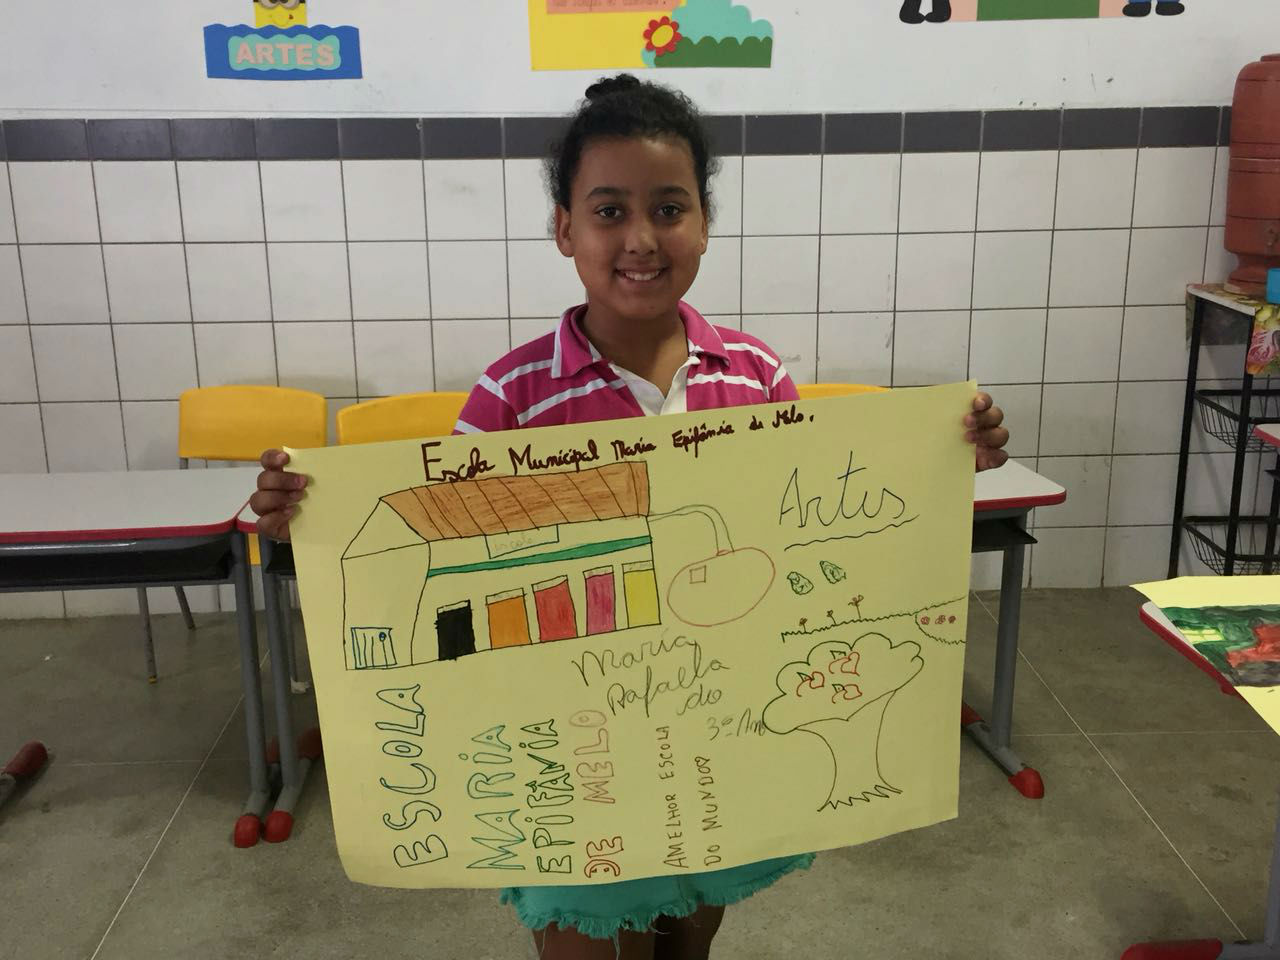 ARTES
Escola Municipal Maria Epifânia de Melo.
Artes
escola
Maria
Rafaella
do
3º Ano
ESCOLA
MARIA
EPIFÂNIA
DE MELO
AMELHOR ESCOLA
DO MUNDO